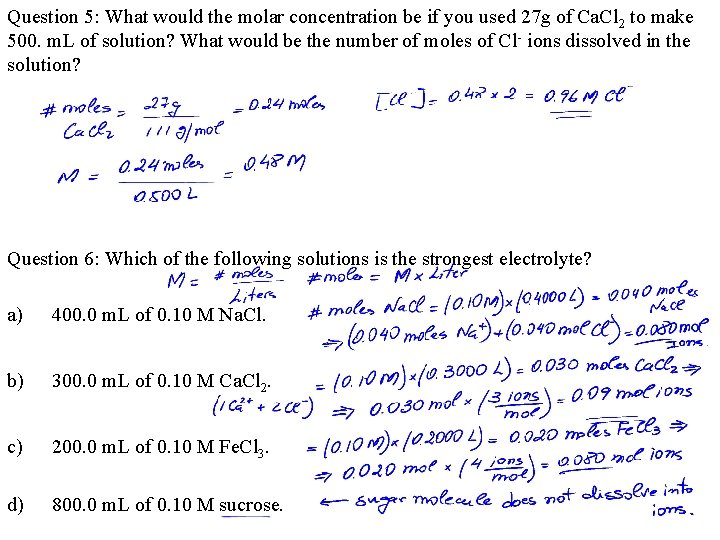 Question 5: What would the molar concentration be if you used 27g of CaCl2 to make
500. mL of solution? What would be the number of moles of Cl- ions dissolved in the
solution?
# moles CaCl2 = 27g / 111 g/mol = 0.24 moles
[Cl-] = 0.48 x 2 = 0.96 M Cl-
M = 0.24 moles / 0.500 L = 0.48 M
Question 6: Which of the following solutions is the strongest electrolyte?
M = # moles / Liters
# moles = M x Liter
a) 400.0 mL of 0.10 M NaCl.
# moles NaCl = (0.10M)x(0.4000L) = 0.040 moles NaCl
⇒ (0.040 moles Na+)+(0.040 mol Cl-) = 0.080 mol ions.
b) 300.0 mL of 0.10 M CaCl2.
= (0.10M)x(0.3000 L) = 0.030 moles CaCl2 ⇒
(1 Ca2+ + 2 Cl-) ⇒ 0.030 mol x (3 ions / mol) = 0.09 mol ions
c) 200.0 mL of 0.10 M FeCl3.
= (0.10M)x(0.2000L) = 0.020 moles FeCl3 ⇒
⇒ 0.020 mol x (4 ions / mol) = 0.080 mol ions
d) 800.0 mL of 0.10 M sucrose.
← sugar molecule does not dissolve into
ions.